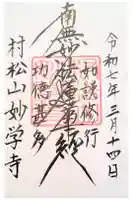 令和七年三月十四日
如説修行
南無妙法蓮華経
功徳甚多
村松山妙学寺